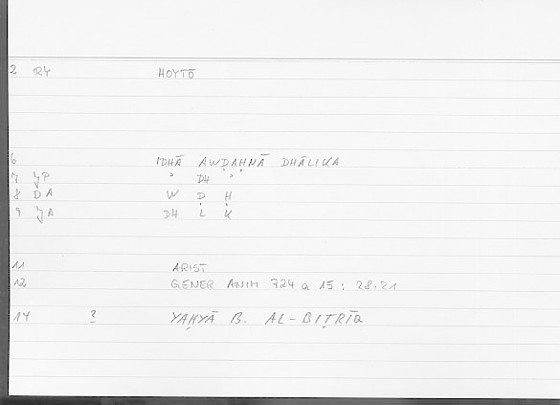 2 RY HOYTŌ
6 IDHĀ AWḌAḤNĀ DHĀLIKA
7 JP " DH "
8 DA W Ḍ Ḥ
9 JA DH L K
11 ARIST
12 GENER ANIM 724 a 15 : 28.21
14 ? YAḤYĀ B. AL-BIṬRĪQ